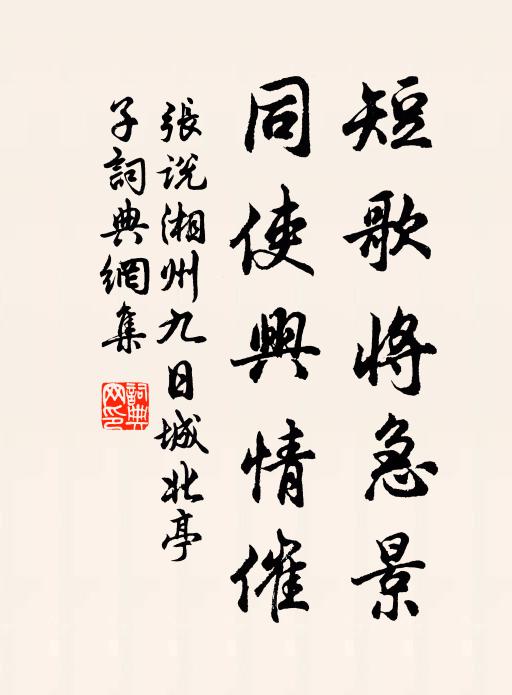 短歌將急景
同使興情催
張説湘州九日城北亭
子詞典網集
詞典
网印